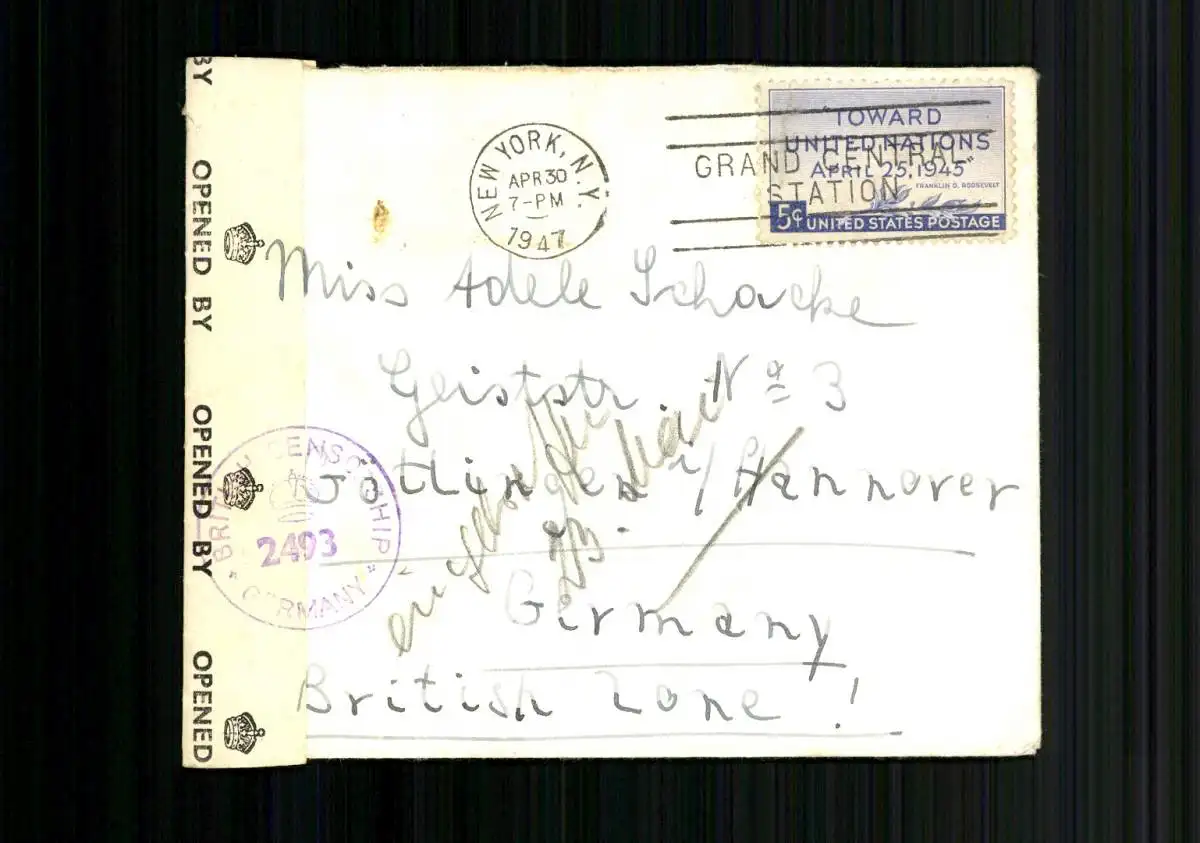 BY
OPENED BY
OPENED BY
OPENED
NEW YORK, N.Y.
APR 30
7-PM
1947
GRAND CENTRAL
STATION
"TOWARD
UNITED NATIONS
APRIL 25, 1945"
FRANKLIN D. ROOSEVELT
5¢ UNITED STATES POSTAGE
Miss Adele Schacke
Geiststr. No 3
Göttingen i/Hannover
Germany
British Zone!
BRITISH CENSORSHIP
2493
GERMANY
23.